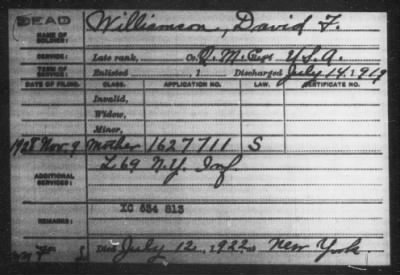 DEAD
NAME OF SOLDIER: Williamson, David F.
SERVICE: Late rank, Co. Q. M. Corps U.S.A.
TERM OF SERVICE: Enlisted , 1 Discharged July 14, 1919
DATE OF FILING. CLASS. APPLICATION NO. LAW. CERTIFICATE NO.
Invalid,
Widow,
Minor,
1928 Nov. 9 Mother 1627711 S
ADDITIONAL SERVICES: L 69 N.Y. Inf.
XC 634 813
REMARKS:
Died July 12, 1922 at New York